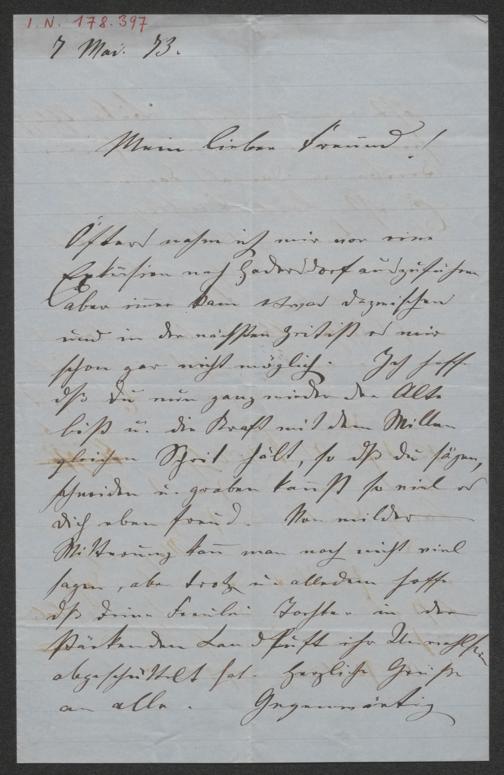 I.N. 178.397
7 Mai. 73.
Mein lieber Freund!
Öfters nahm ich mir vor eine
Exkursion nach Hadersdorf auszuführen
aber immer kam etwas dazwischen
und in der nächsten Zeit ist es mir
schon gar nicht möglich. Ich hoffe
dß Du nun ganz wieder der Alte
bist u. die Kraft mit dem Willen
gleichen Schrit hält, so dß du sägen,
schneiden u. graben kannst so viel es
dich eben freud. Von milder
Witterung kan man noch nicht viel
sagen, aber trotz und alledem hoffe
dß deine Freulei Tochter in der
stärkenden Landluft ihr Unwohlsein
abgeschüttelt hat. Herzliche Grüße
an alle. Gegenwärtig